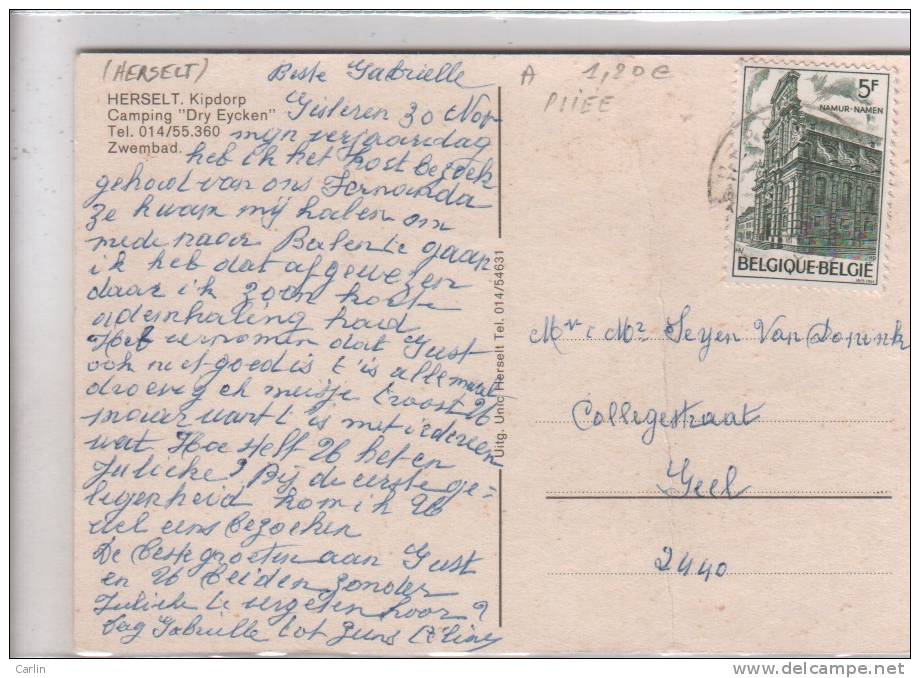 (HERSELT)
HERSELT. Kipdorp
Camping "Dry Eycken"
Tel. 014/55.360
Zwembad.
Beste Gabrielle
Gisteren 30 Nov
mijn verjaardag
heb ik het bezoek
gehad van ons Fernanda
ze kwam mij halen om
mede naar Balen te gaan
ik heb dat afgewezen
daar ik zoon korte
ademhaling had
Heb vernomen dat Gust
ook niet goed is t'is allemaal
droevig eh meisje troost U
maar want t is met iedereen
wat Hoe stelt U het en
Julieke? Bij de eerste ge=
legenheid kom ik U
eens bezoeken
De beste groeten aan Gust
en U beiden zonder
Julieke te vergeten hoor?
Dag Gabrielle tot ziens
Uitg. Unic Herselt Tel. 014/54631
A 1,20€
PLIÉE
5F
NAMUR-NAMEN
BELGIQUE-BELGIË
Mr & Mw Seyen Van
Collegestraat
Geel
2440
Carlin
delcampe.net